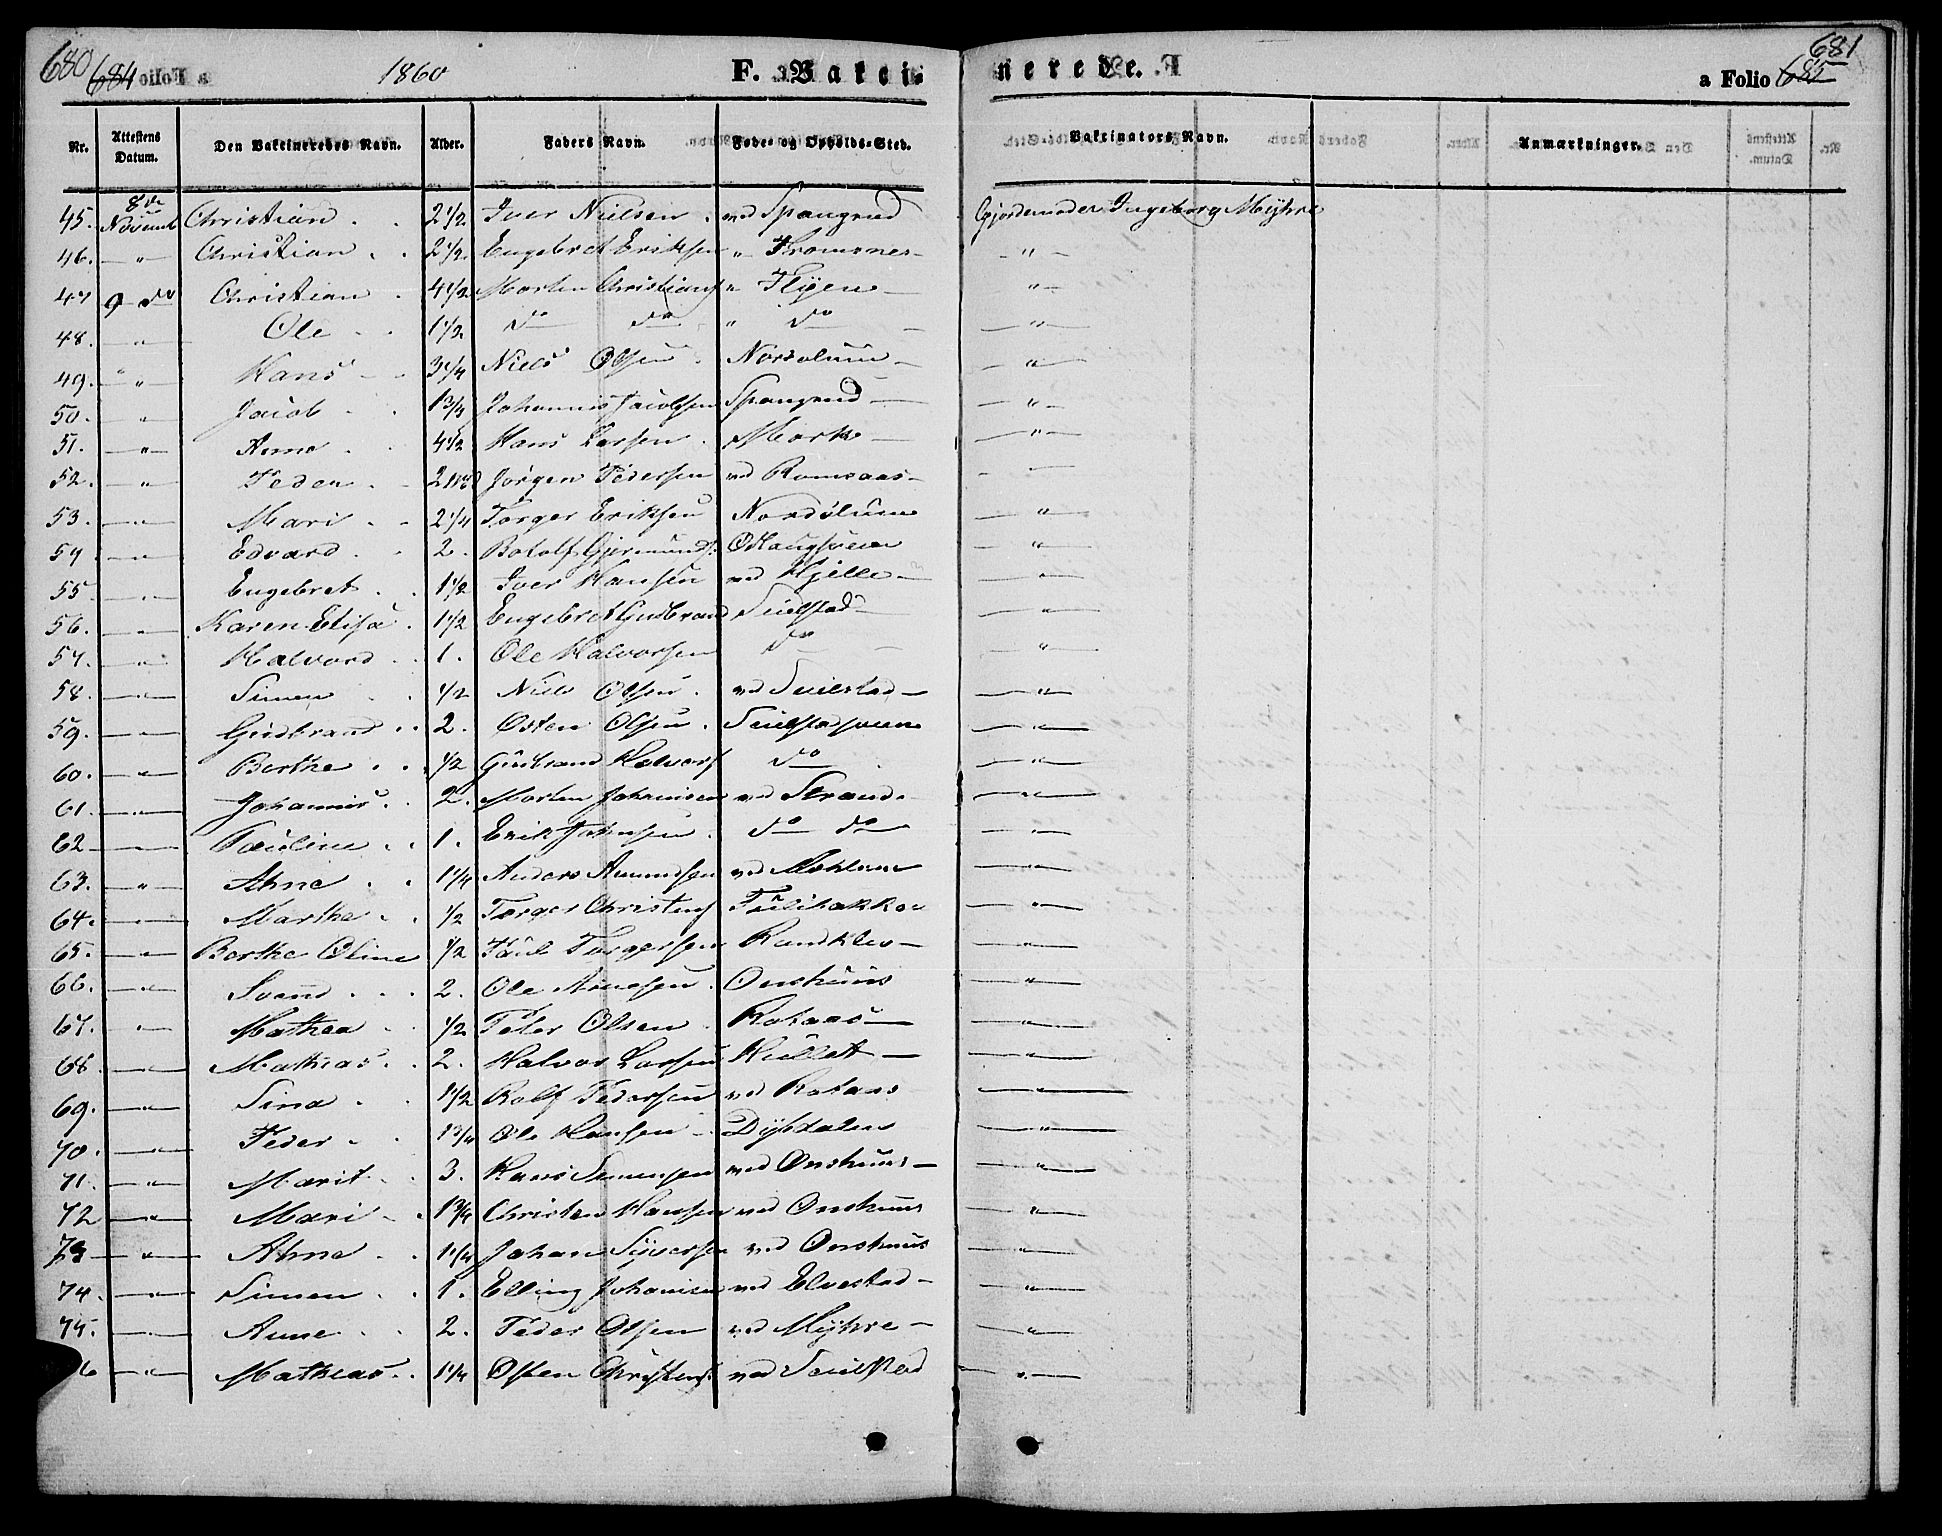 680 684 a Folio 1860 F. Vakci
nerede. a Folio 685 681
Nr. Attestens Datum. Den Vaktineredes Navn. Alder. Faders Navn. Føde- og Opholds-Sted. Vakcinators Navn. Anmærkninger.
45. 8de Novemb Christian . . 2 1/2 Iver Nielsen . ved Spangrud Gjordemoder Ingeborg Myhre
46. — " — Christian . . 2 1/2. Engebret Eriksen " Tromsnes — — " —
47 9 — do Christian . 4 1/2 Morten Christians " Flyen — — " —
48. — " — Ole . . 1 1/2 do do " do — — " —
49. " " Hans — 3 1/4 Niels Olsen . — — " —
50. " Jacob . . 1 3/4 Johannis Jacobsen Spangrud — — " —
51. — " — Arne . . 4 1/2 Hans Larsen . — " —
52. — " — Peder . — 2 Jørgen Pedersen ved Romsaas — — —
53. — " — Mari . — 2 1/4 Torger Eriksen — " —
54. — " — Edvard . . 2. Botolf Gjermunds. — " —
55. — " — Engebret . . 1 1/2 Iver Hansen ved Kjelle — — " —
56. — " — Karen Elisa . 1 1/2 Engebret Gudbrand Seielstad — — " —
57. — " — Halvord . . 1. Ole Halvorsen do — — " —
58. — " — Simen . 1/2 Niels Olsen . ved Seielstad — — " —
59. — " — Gudbrand . . 2. Østen Olsen . — " —
60. — " — Berthe . . 1/2 Gudbrand Halvors do . — " —
61. — " — Johannis . . 2. Morten Johansen ved Strand . — " —
62 — " — Pauline . . 1. Erik Johnsen . do do — " —
63. — " — Ahne . . 1 1/4 Anders Amundsen ved — " —
64. — " — Marthe . . 1/2 Torger Christens — " —
65. — " — Berthe Oline 1/2 Paul Torgersen Randklev — — " —
66. — " — Svend . . . 2. Ole Arnesen . Onshuus — " —
67. — " — Mathea . . 1/2 Peter Olsen . Rotaas — — " —
68. — " — Mathias . . 2. Halvor Larsen Hullet — — " —
69. — " — Sina . . 1 1/2 Rolf Pedersen ved Rotaas — " —
70. — " — Peder . . 1 3/4 Ole Hansen — Dybdalen — " —
71. — " — Marit . . 3. Hans Simensen ved Onshuus — — " —
72 — " — Mari . . 1 3/4 Christen Hansen ved Onshuus — " —
73 — " — Ahne . . 1 1/4 Johan Syversen ved Onshuus — " —
74. — " — Simen . . 1. Elling Johansen ved Elvestad — — " —
75. — " — Anne . . 2. Peder Olsen ved Myhre — — " —
6 — " — Mathias . . 1 1/4 Østen Christens ved Seielstad — " —